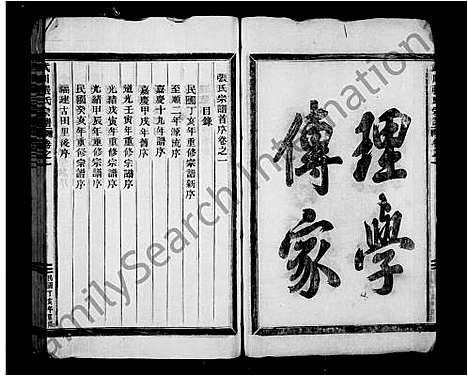 理學
傳家
張氏宗譜首序卷之一
目錄
民國丁亥年重修宗譜新序
至順二年源流序
嘉慶十九年譜序
嘉慶甲戌年舊序
道光壬午年譜序
光緒戊寅年重修宗譜序
光緒甲辰年重修宗譜序
民國癸亥年重修宗譜序
福建古田里後序
民國丁亥年重修
FamilySearch International